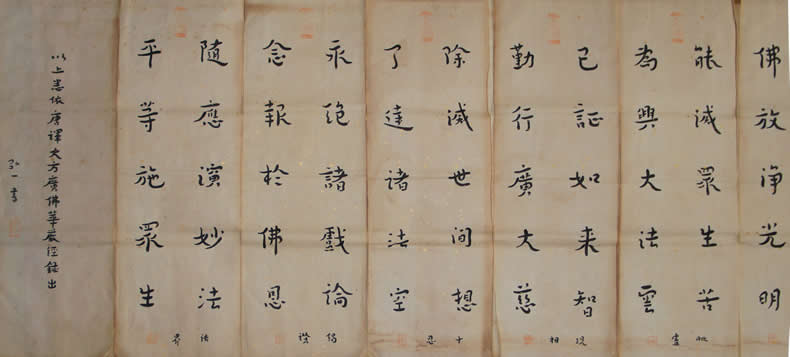 佛放淨光明
能滅眾生苦
為興大法雲
毗盧
已証如来智
勤行廣大慈
現相
除滅世间想
了達诸法空
十忍
永绝諸戲論
念報於佛恩
偈讚
隨應演妙法
平等施眾生
法界
以上悉依唐譯大方廣佛華嚴經録出
弘一書